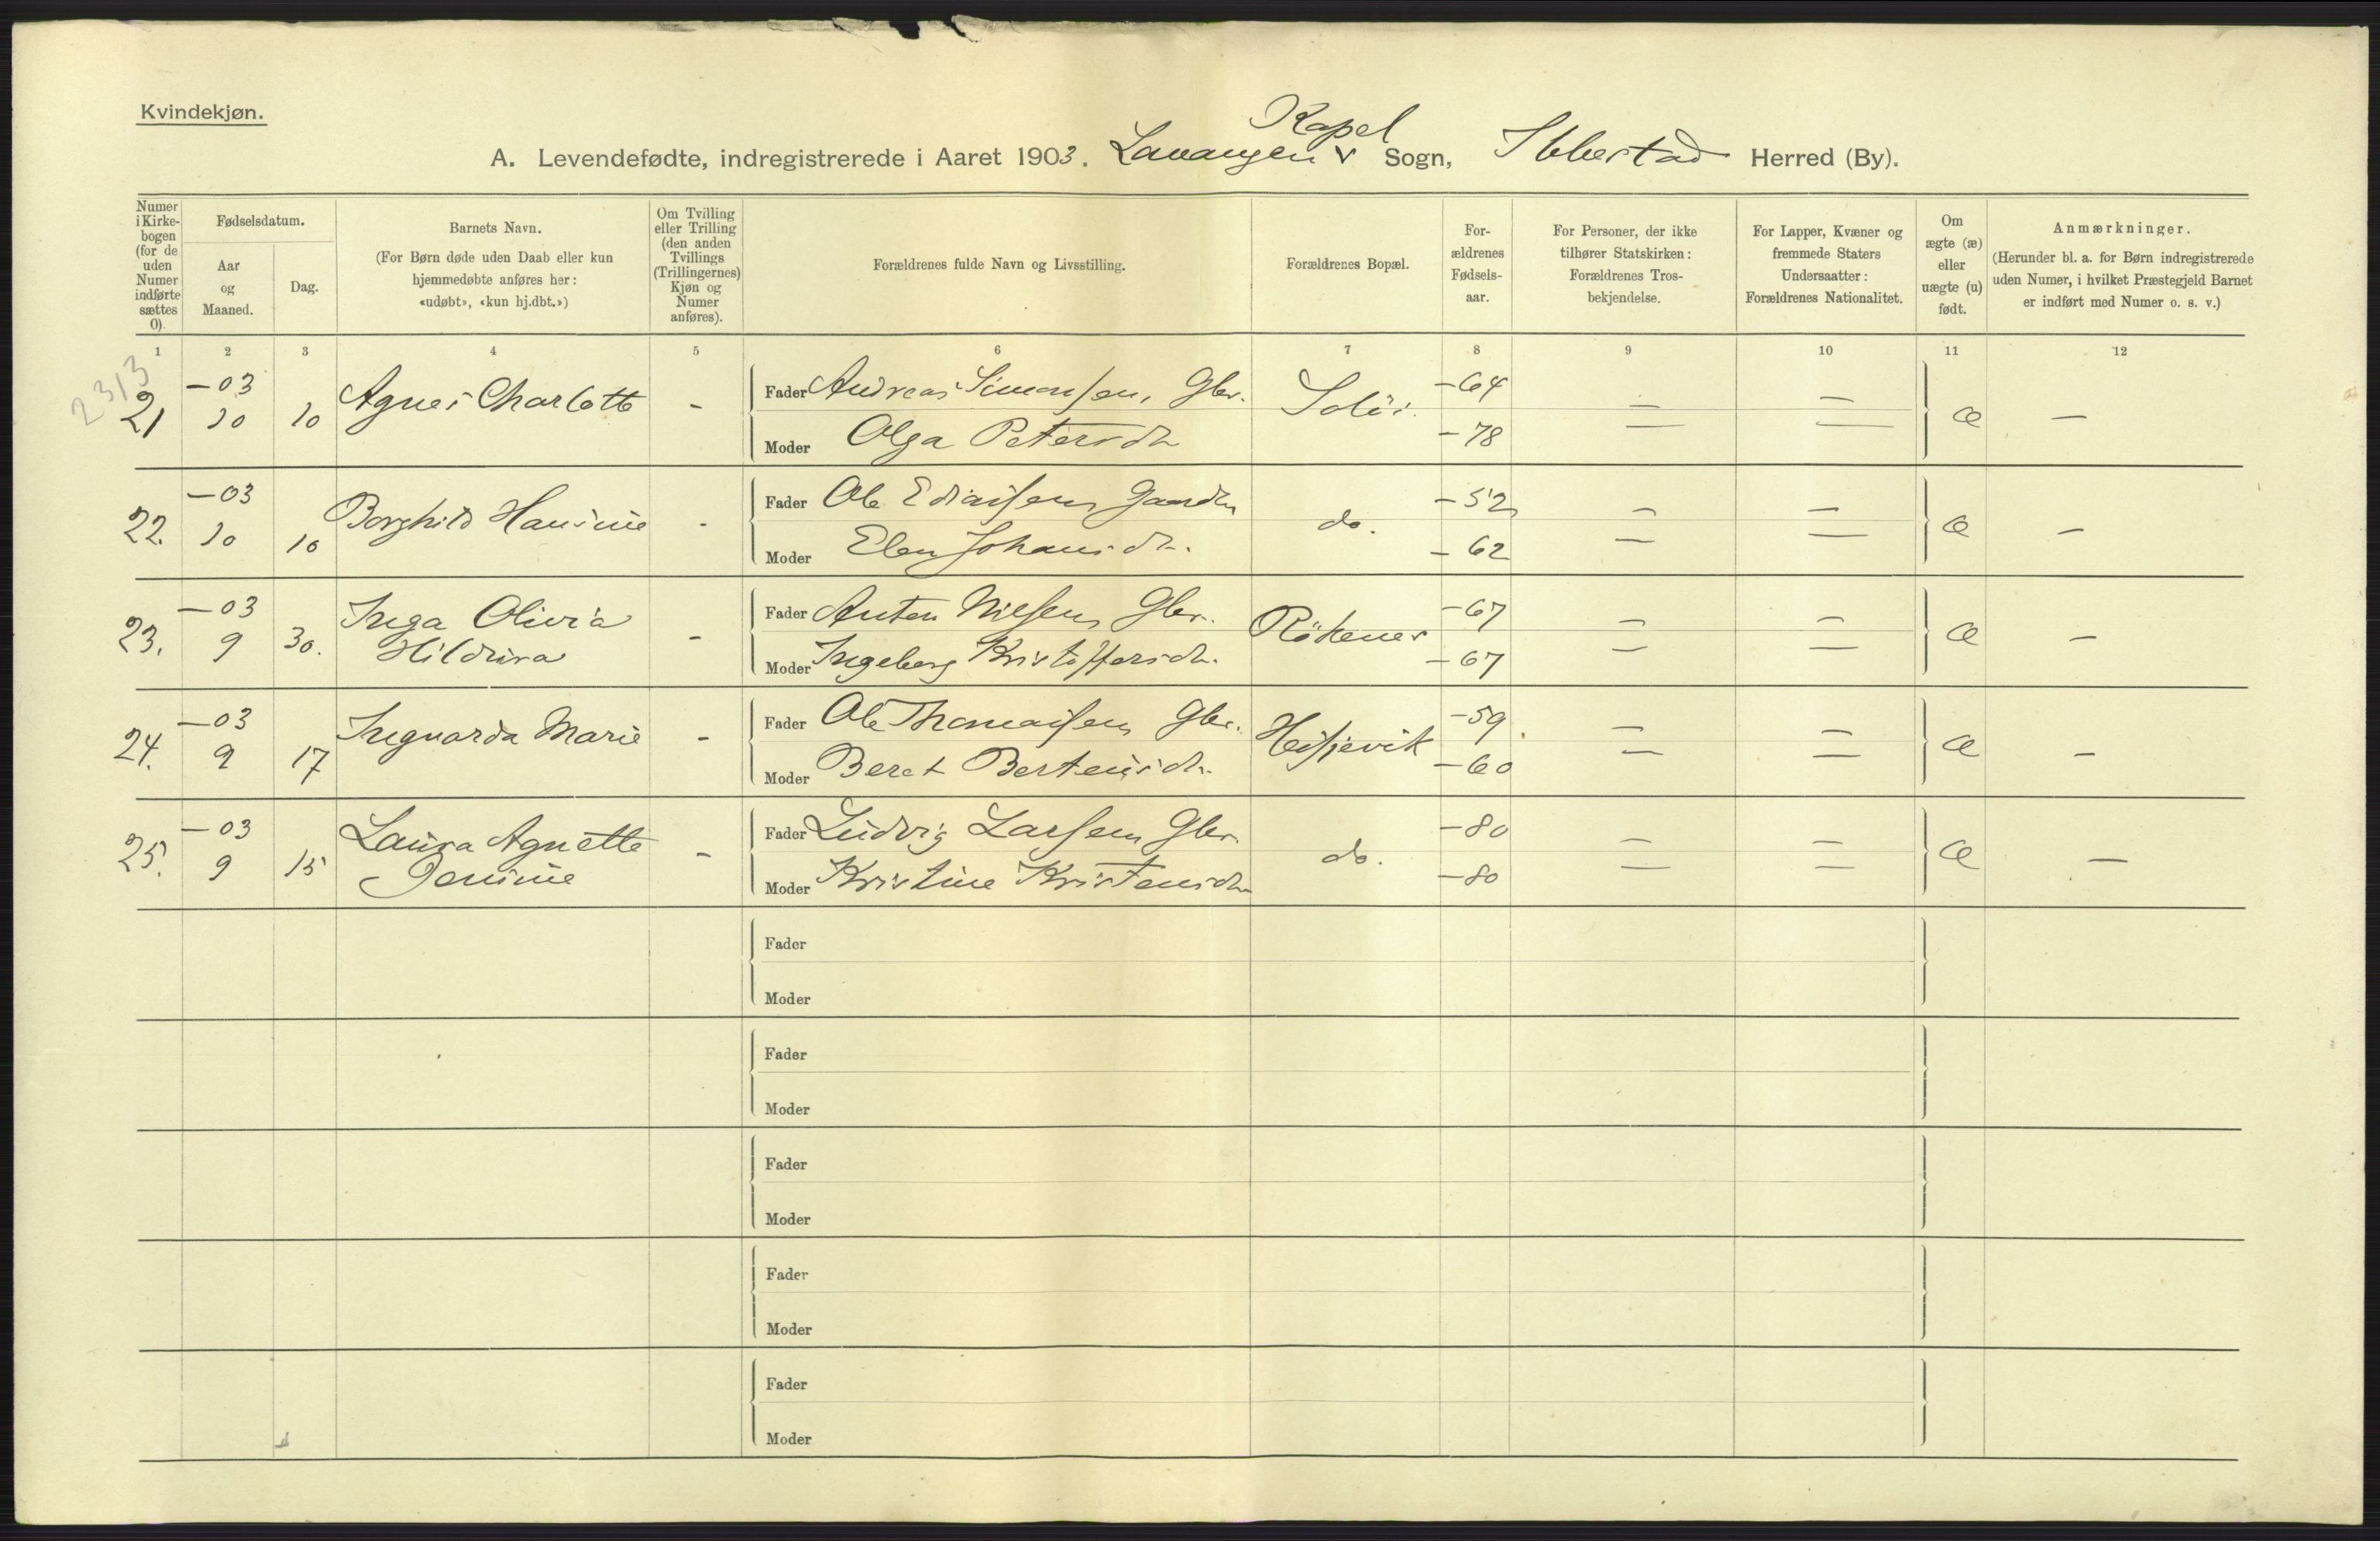 Kvindekjøn.
Kapel
A. Levendefødte, indregistrerede i Aaret 1903. Lavangen v Sogn, Ibbestad Herred (By).
Numer i Kirke-bogen (for de uden Numer indførte sættes 0).
Fødselsdatum.
Aar og Maaned.
Dag.
Barnets Navn.
(For Børn døde uden Daab eller kun hjemmedøbte anføres her: «udøbt», «kun hj.dbt.»)
Om Tvilling eller Trilling (den anden Tvillings (Trillingernes) Kjøn og Numer anføres).
Forældrenes fulde Navn og Livsstilling.
Forældrenes Bopæl.
For-ældrenes Fødsels-aar.
For Personer, der ikke tilhører Statskirken: Forældrenes Tros-bekjendelse.
For Lapper, Kvæner og fremmede Staters Undersaatter: Forældrenes Nationalitet.
Om ægte (æ) eller uægte (u) født.
Anmærkninger.
(Herunder bl. a. for Børn indregistrerede uden Numer, i hvilket Præstegjeld Barnet er indført med Numer o. s. v.)
1 2 3 4 5 6 7 8 9 10 11 12
2313
21 –03 10 10 Agnes Charlotte – Fader Andreas Simonsen, Gbr. –64 — — æ —
Moder Olga Petersdr –78 — —
22. –03 10 10 Borghild Hansine – Fader Ole Ediassen Gaardbr do. –52 — — æ —
Moder Elen Johansdr. –62 — —
23. –03 9 30. Inga Olivia Hildura – Fader Anton Nielsen Gbr. Rökenes –67 — — æ —
Moder Ingeborg Kristoffersdr. –67 — —
24. –03 9 17 Inguarda Marie – Fader Ole Thomassen Gbr. Hessjevik –59 — — æ —
Moder Beret Berteusdr. –60 — —
25. –03 9 15 Laura Agnette Jensine – Fader Ludvig Larsen Gbr. do. –80 — — æ —
Moder Kristine Kristensdr –80 — —
Fader
Moder
Fader
Moder
Fader
Moder
Fader
Moder
Fader
Moder